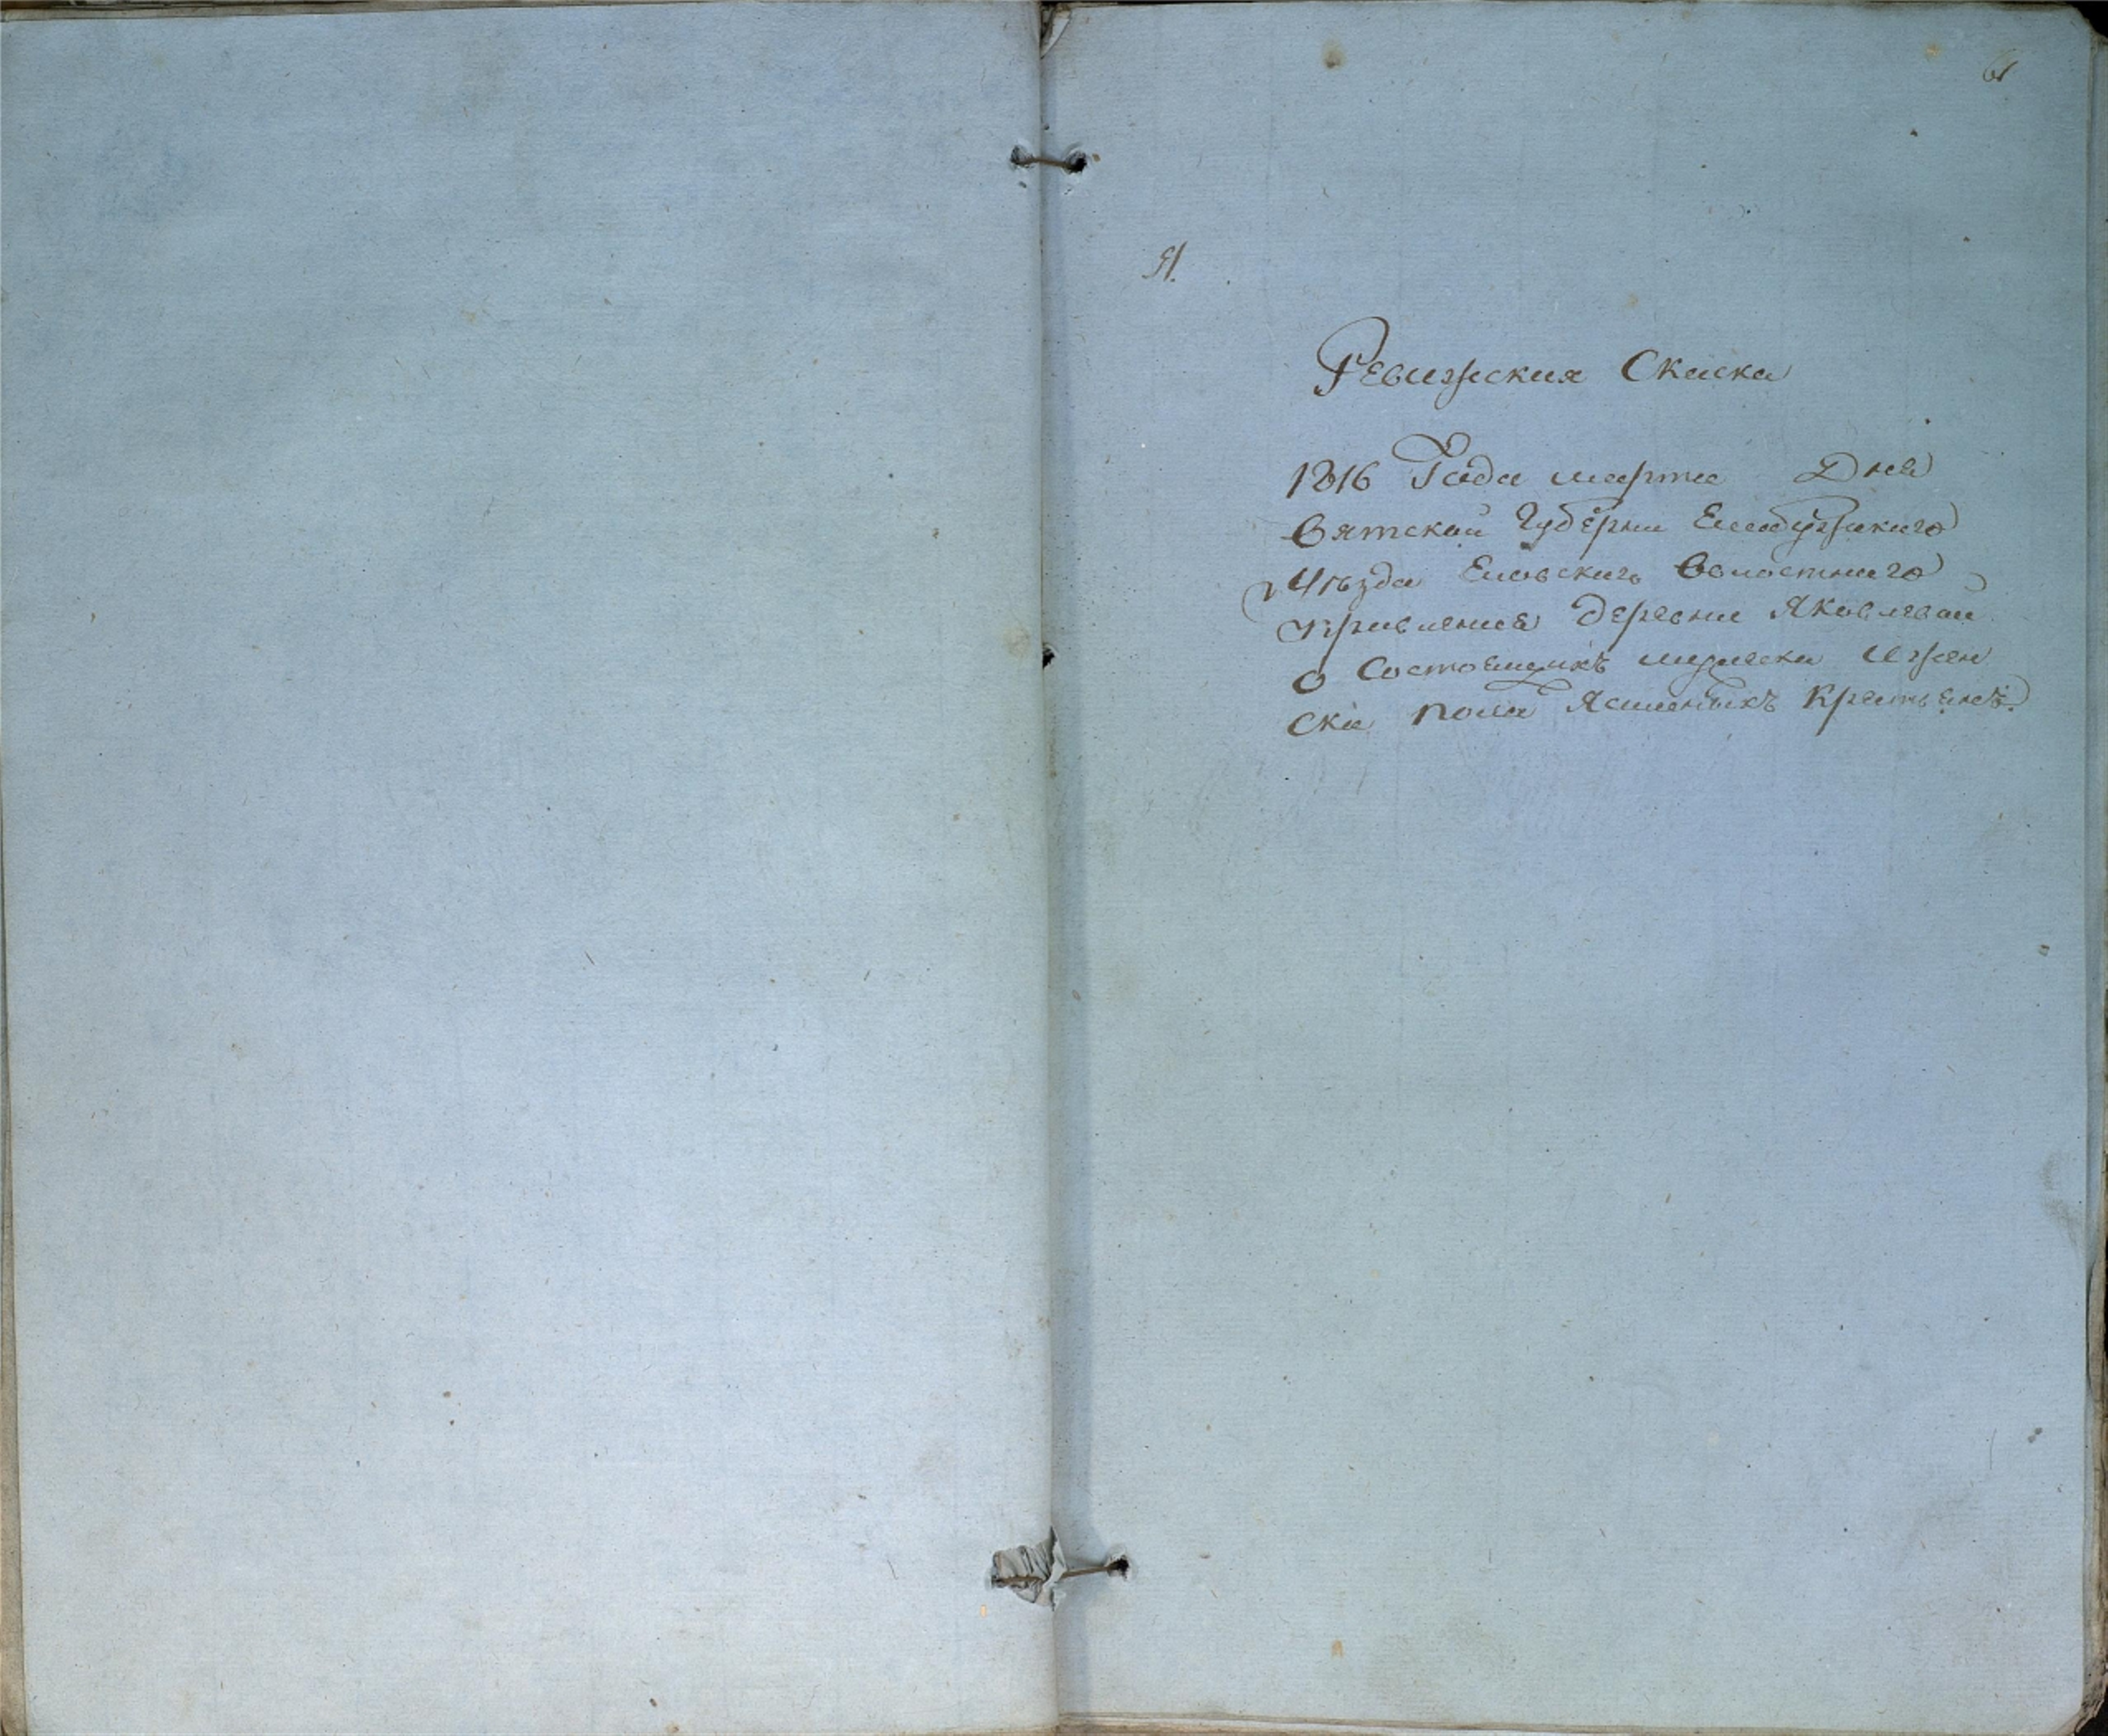 61
Я.
Ревижская Скаска
1816 Года марта Дня
Вятской Губерни Елабужскаго
Уѣзда Еловскаго Волостнаго
Правления деревни Яковлевой
О Состоящихъ мужеска Ижен
ска пола Ясашныхъ Крестьянъ